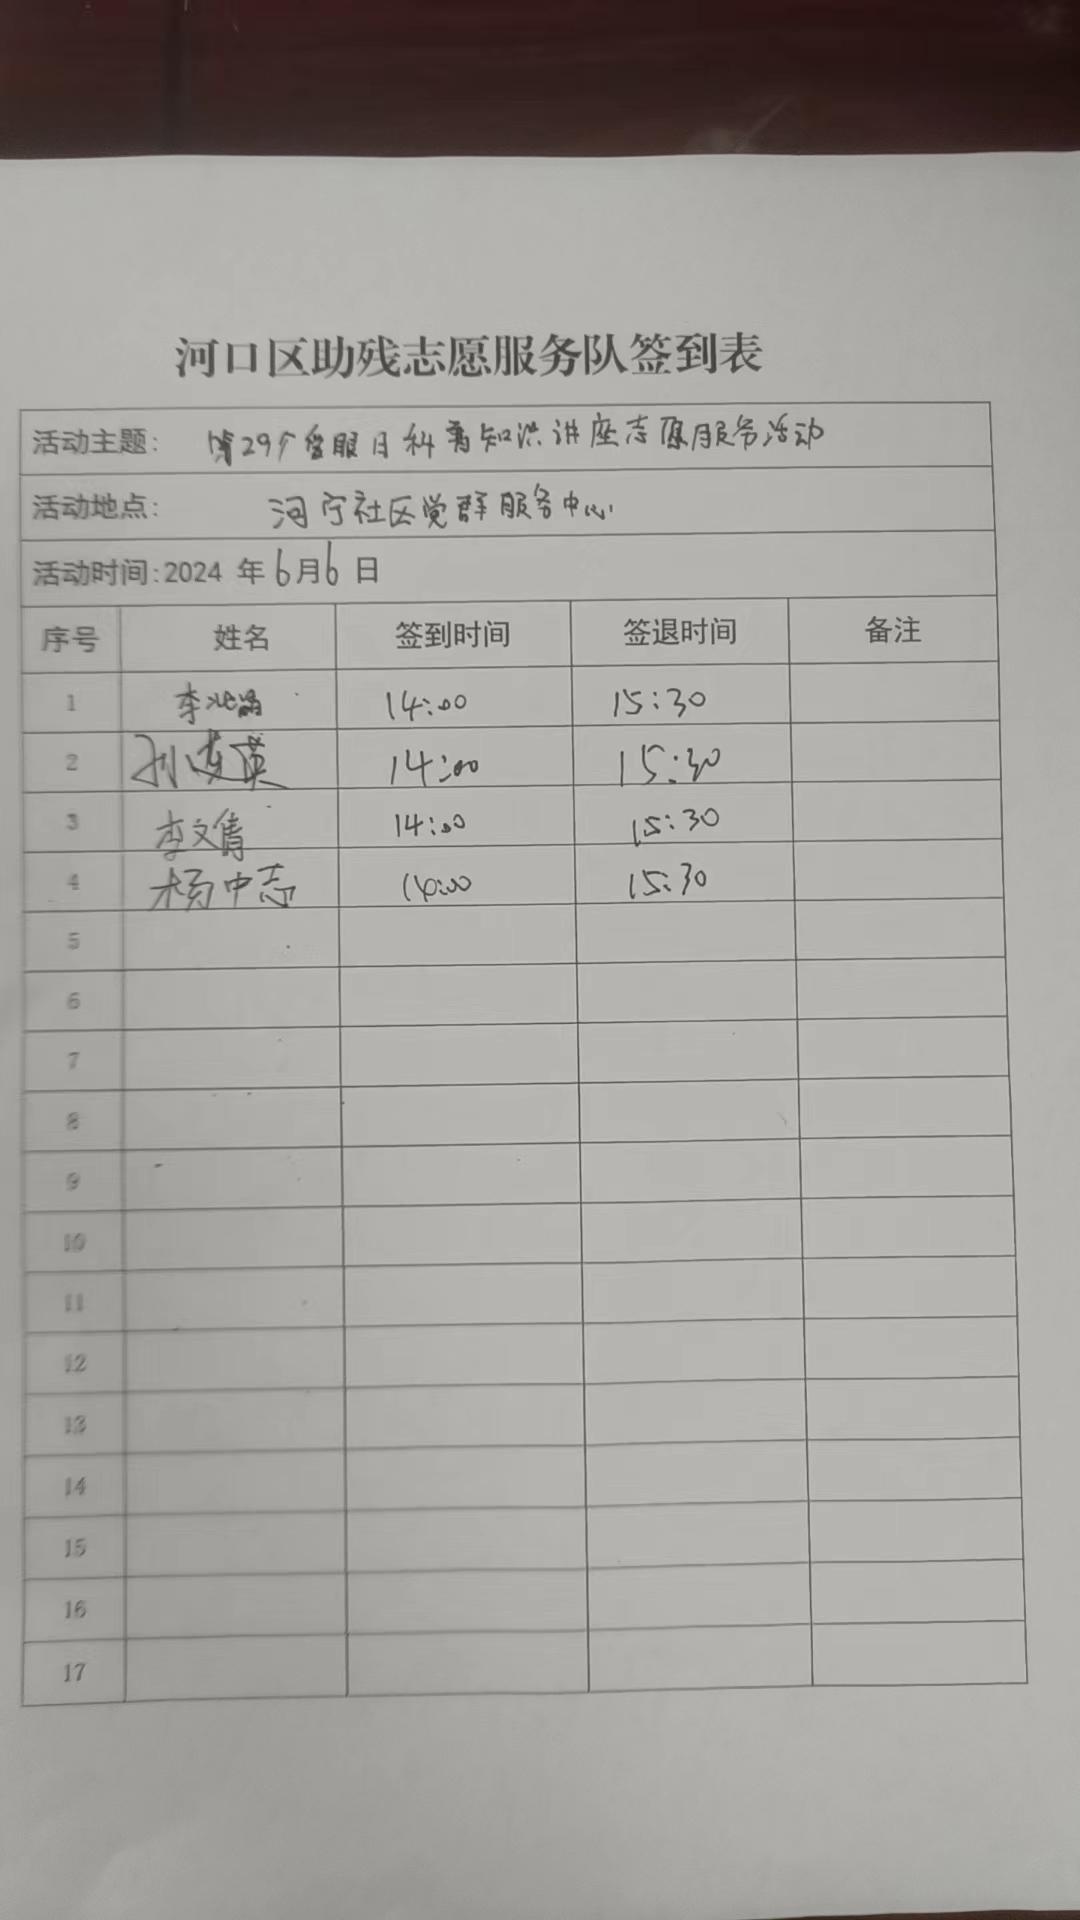 河口区助残志愿服务队签到表
活动主题: 第29个爱眼日科普知识讲座志愿服务活动
活动地点: 河宁社区党群服务中心
活动时间:2024 年6月6日
序号 姓名 签到时间 签退时间 备注
1 李 14:00 15:30
2 孙连英 14:00 15:30
3 李文倩 14:00 15:30
4 杨中志 14:00 15:30
5
6
7
8
9
10
11
12
13
14
15
16
17